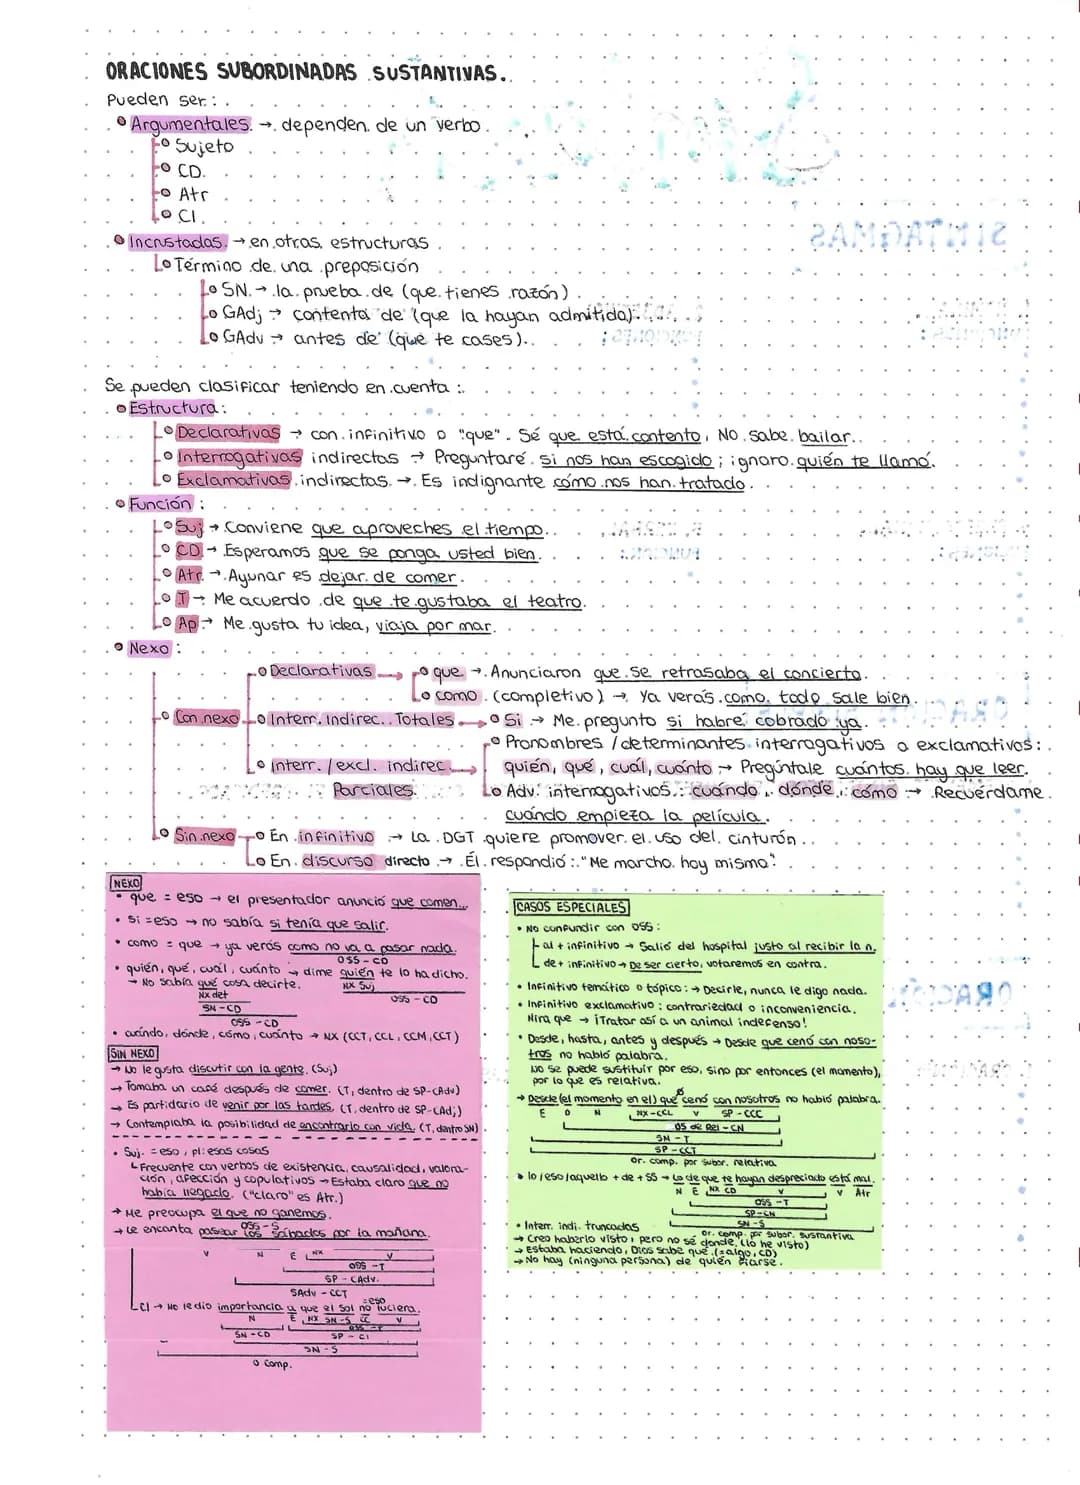 ORACIONES SUBORDINADAS SUSTANTIVAS.
Pueden ser:
Argumentales. → dependen de un verbo.
Sujeto
CD.
Atr
CI.
Incrustadas. → en otras estructuras
Término de una preposición
SN. → la prueba de (que tienes razón)
GAdj → contenta de (que la hayan admitida)
GAdv → antes de (que te cases)..
Se pueden clasificar teniendo en cuenta:
Estructura:
Declarativas → con infinitivo o "que". Sé que está contento, No sabe bailar.
Interrogativas indirectas → Preguntaré si nos han escogido; ignoro quién te llamó.
Exclamativas indirectas. → Es indignante cómo nos han tratado.
Función:
Suj → Conviene que aproveches el tiempo.
CD → Esperamos que se ponga usted bien.
Atr. → Ayunar es dejar de comer.
T → Me acuerdo de que te gustaba el teatro.
Ap → Me gusta tu idea, viaja por mar.
Nexo:
Declarativas → que → Anunciaron que se retrasaba el concierto.
como (completivo) → Ya verás como todo sale bien.
Con nexo Interr. Indirec. Totales → Si → Me pregunto si habré cobrado ya.
Pronombres / determinantes interrogativos o exclamativos:
Interr. / excl. indirec → quién, qué, cuál, cuánto → Pregúntale cuántos hay que leer.
Parciales. Adv. interrogativos: cuándo, dónde, cómo → Recuérdame
cuándo empieza la película.
Sin nexo En infinitivo → La DGT quiere promover el uso del cinturón..
En discurso directo → Él respondió: "Me marcho hoy mismo".
NEXO
que = eso → el presentador anunció que comen...
Si = eso → no sabía si tenía que salir.
como = que → ya verás como no va a pasar nada.
OSS - CD
quién, qué, cuál, cuánto → dime quién te lo ha dicho.
→ No sabía qué cosa decirte. NX Suj
NX det OSS - CD
SN - CD
OSS - CD
cuándo, dónde, cómo, cuánto → NX (CCT, CCL, CCM, CCT)
SIN NEXO
→ No le gusta discutir con la gente. (Suj)
→ Tomaba un café después de comer. (T, dentro de SP-CAdv)
→ Es partidario de venir por las tardes. (T. dentro de SP-CAdj)
→ Contemplaba la posibilidad de encontrarlo con vida. (T, dentro SN)
Suj. = eso, pl: esas cosas
Frecuente con verbos de existencia, causalidad, valora-
ción, afección y copulativos → Estaba claro que no
había llegado. ("claro" es Atr.)
→ Me preocupa el que no ganemos.
OSS - S
→ Le encanta pasear los sábados por la mañana.
V N E NX V
OSS - T
SP - CAdv.
SAdv - CCT
=eso
CI → No le dio importancia a que el Sol no luciera.
N E NX SN-S CC V
OSS - T
SN - CD SP - CI
SN - S
O Comp.
CASOS ESPECIALES
No confundir con OSS:
al + infinitivo → Salió del hospital justo al recibir la n.
de + infinitivo → De ser cierto, votaremos en contra.
Infinitivo temático o tópico: → Decirle, nunca le digo nada.
Infinitivo exclamativo: contrariedad o inconveniencia.
Mira que → ¡Tratar así a un animal indefenso!
Desde, hasta, antes y después → Desde que cenó con noso-
tros no habló palabra.
No se puede sustituir por eso, sino por entonces (el momento),
por lo que es relativa.
→ Desde (el momento en el) que cenó con nosotros no habló palabra.
E D N NX-CCL V SP - CCC
OS de Rel - CN
SN - T
SP - CCT
Or. comp. por subor. relativa
lo / eso / aquello + de + SS → Lo de que te hayan despreciado está mal.
N E NX CD V V Atr
OSS - T
SP - CN
SN - S
Or. comp. por subor. sustantiva
Interr. indi. truncadas
→ Creo haberlo visto, pero no sé dónde. (lo he visto)
→ Estaba haciendo, Dios sabe qué. (=algo, CD)
→ No hay (ninguna persona) de quién fiarse.